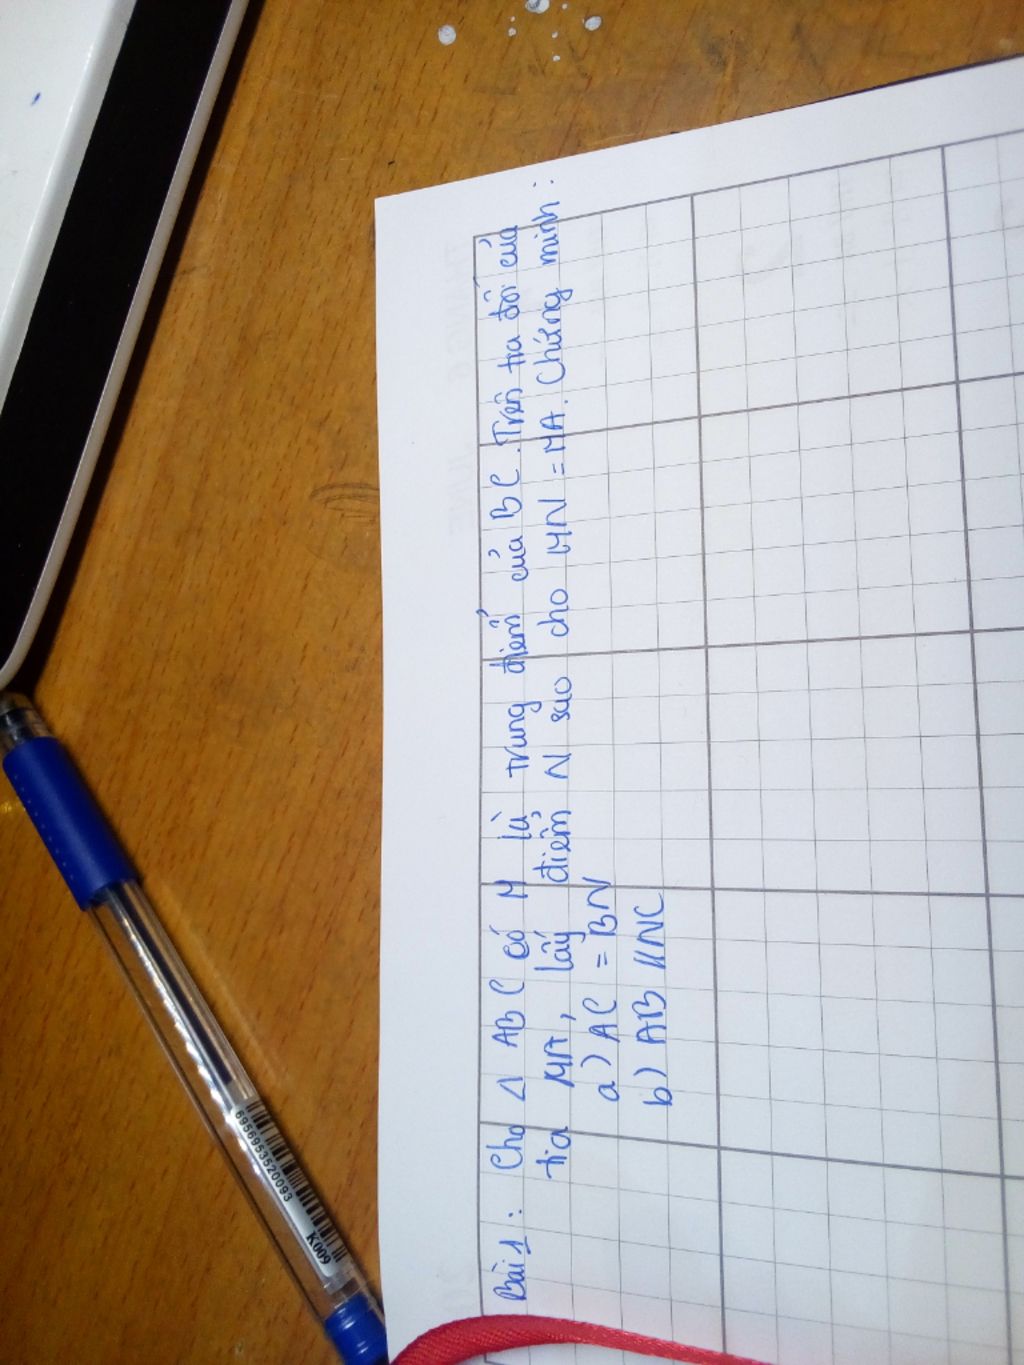 Bài 1: Cho Δ ABC có M là trung điểm của BC. Trên tia đối của
tia MA, lấy điểm N sao cho MN = MA. Chứng minh:
a) AC = BN
b) AB // NC
6956953520093
K009